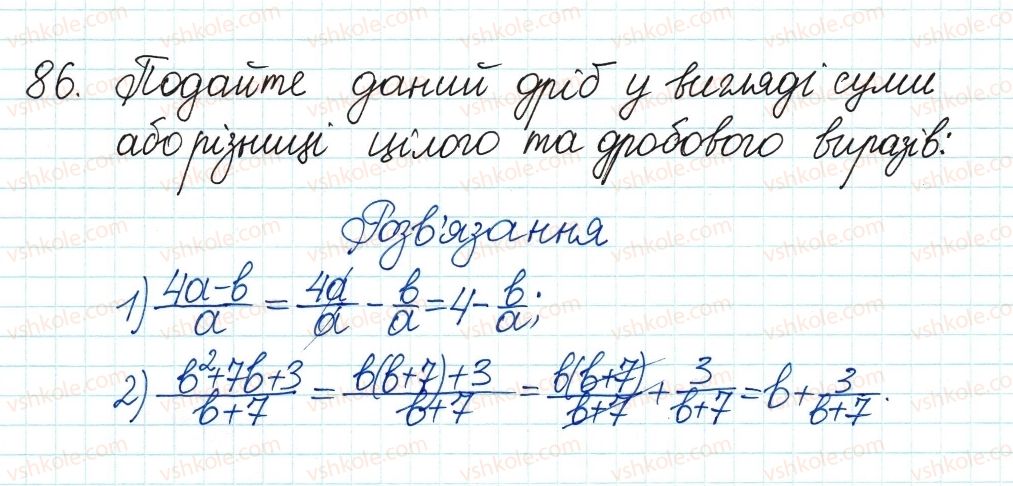 86. Подайте даний дріб у вигляді суми
або різниці цілого та дробового виразів:
Розв'язання
1) \frac{4a-b}{a} = \frac{4a}{a} - \frac{b}{a} = 4 - \frac{b}{a};
2) \frac{b^2+7b+3}{b+7} = \frac{b(b+7)+3}{b+7} = \frac{b(b+7)}{b+7} + \frac{3}{b+7} = b + \frac{3}{b+7}.